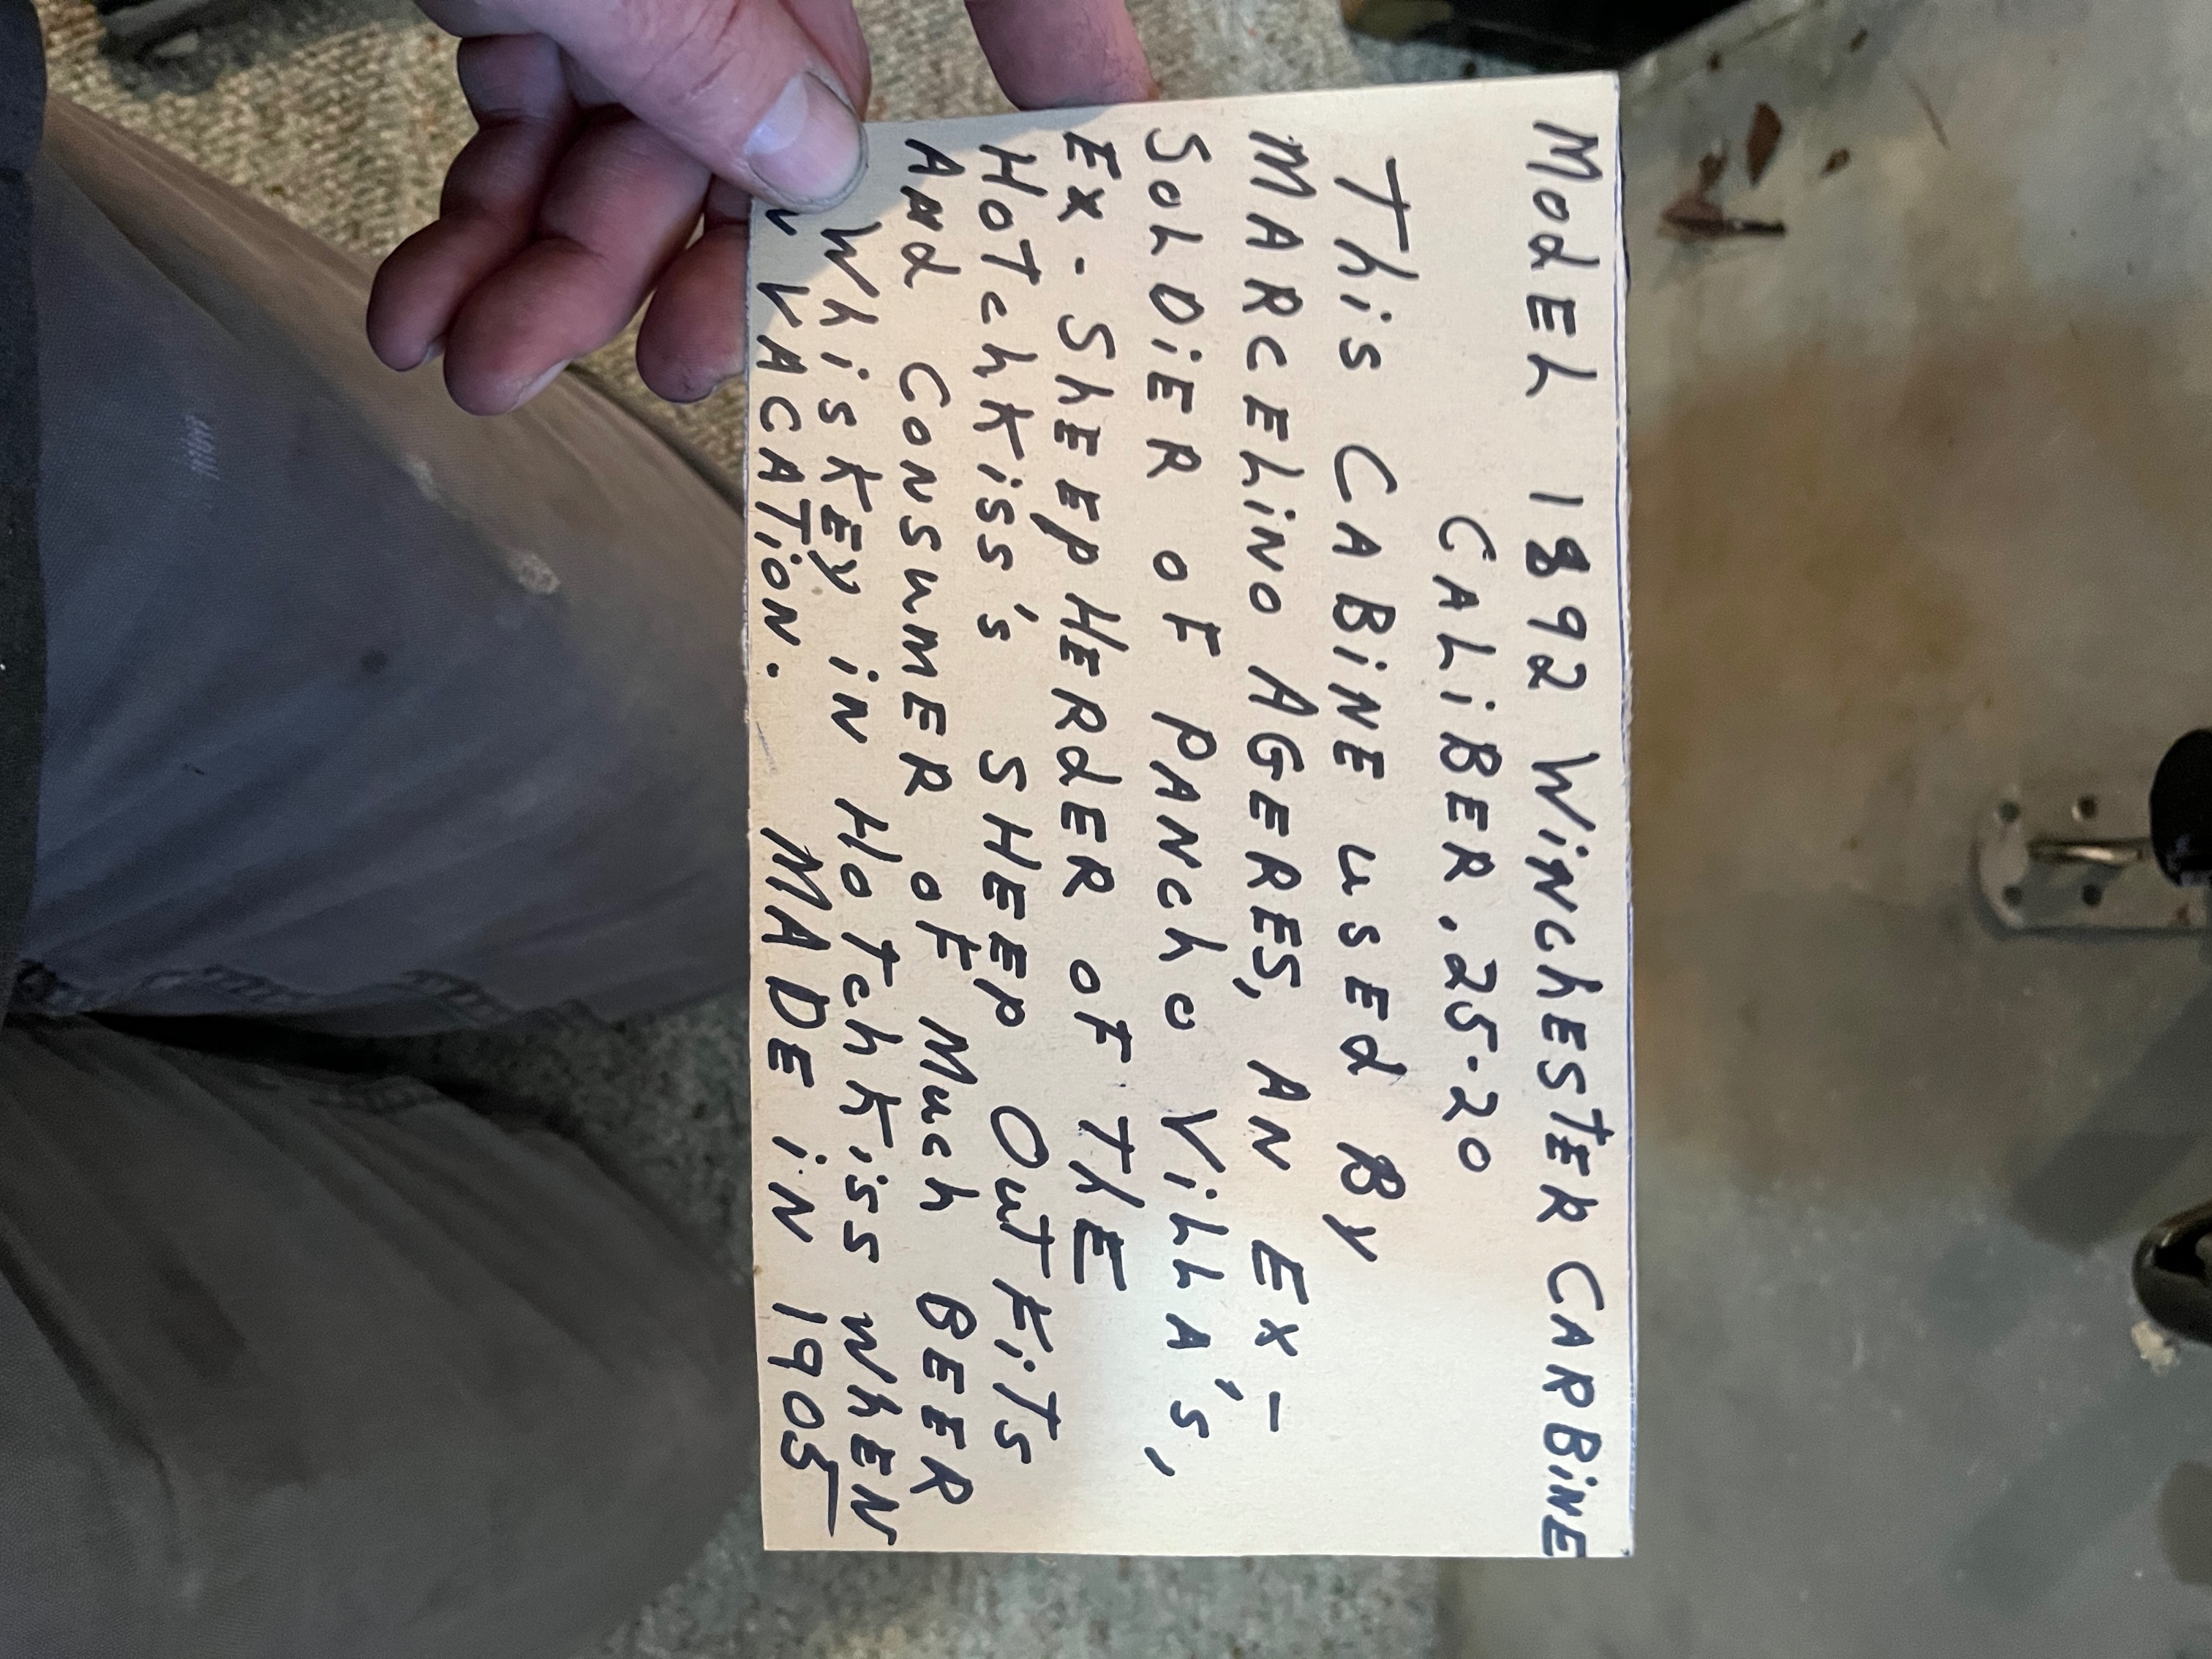 ModEL 1892 WiNchESTER CARBiNE
CALiBER .25-20
This CABiNE usEd By
MARCELiNO AGERES, AN EX-
SoLDiER oF PANcho ViLLA's,
EX-ShEEpHERdER oF ThE
HoTchKiss's SHEEP OutFiTs
ANd CoNSuMER oF Much BEER
WhisKEy iN HoTchKiss WhEN
VACATioN. MADE iN 1905